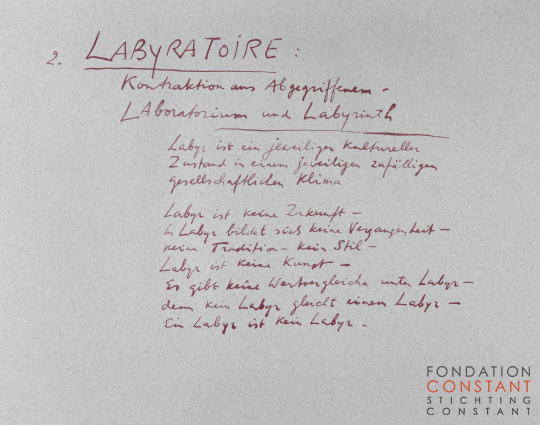 2. LABYRATOIRE :
Kontraktion aus Abgegriffenem -
LABoratorium und Labyrinth
Labyr ist ein jeweiliger kultureller
Zustand in einem jeweiligen zufälligen
gesellschaftlichen Klima
Labyr ist keine Zukunft -
In Labyr bildet sich keine Vergangenheit -
keine Tradition - kein Stil -
Labyr ist keine Kunst -
Es gibt keine Wertvergleiche unter Labyr -
denn kein Labyr gleicht einem Labyr -
Ein Labyr ist kein Labyr.
FONDATION
CONSTANT
STICHTING
CONSTANT